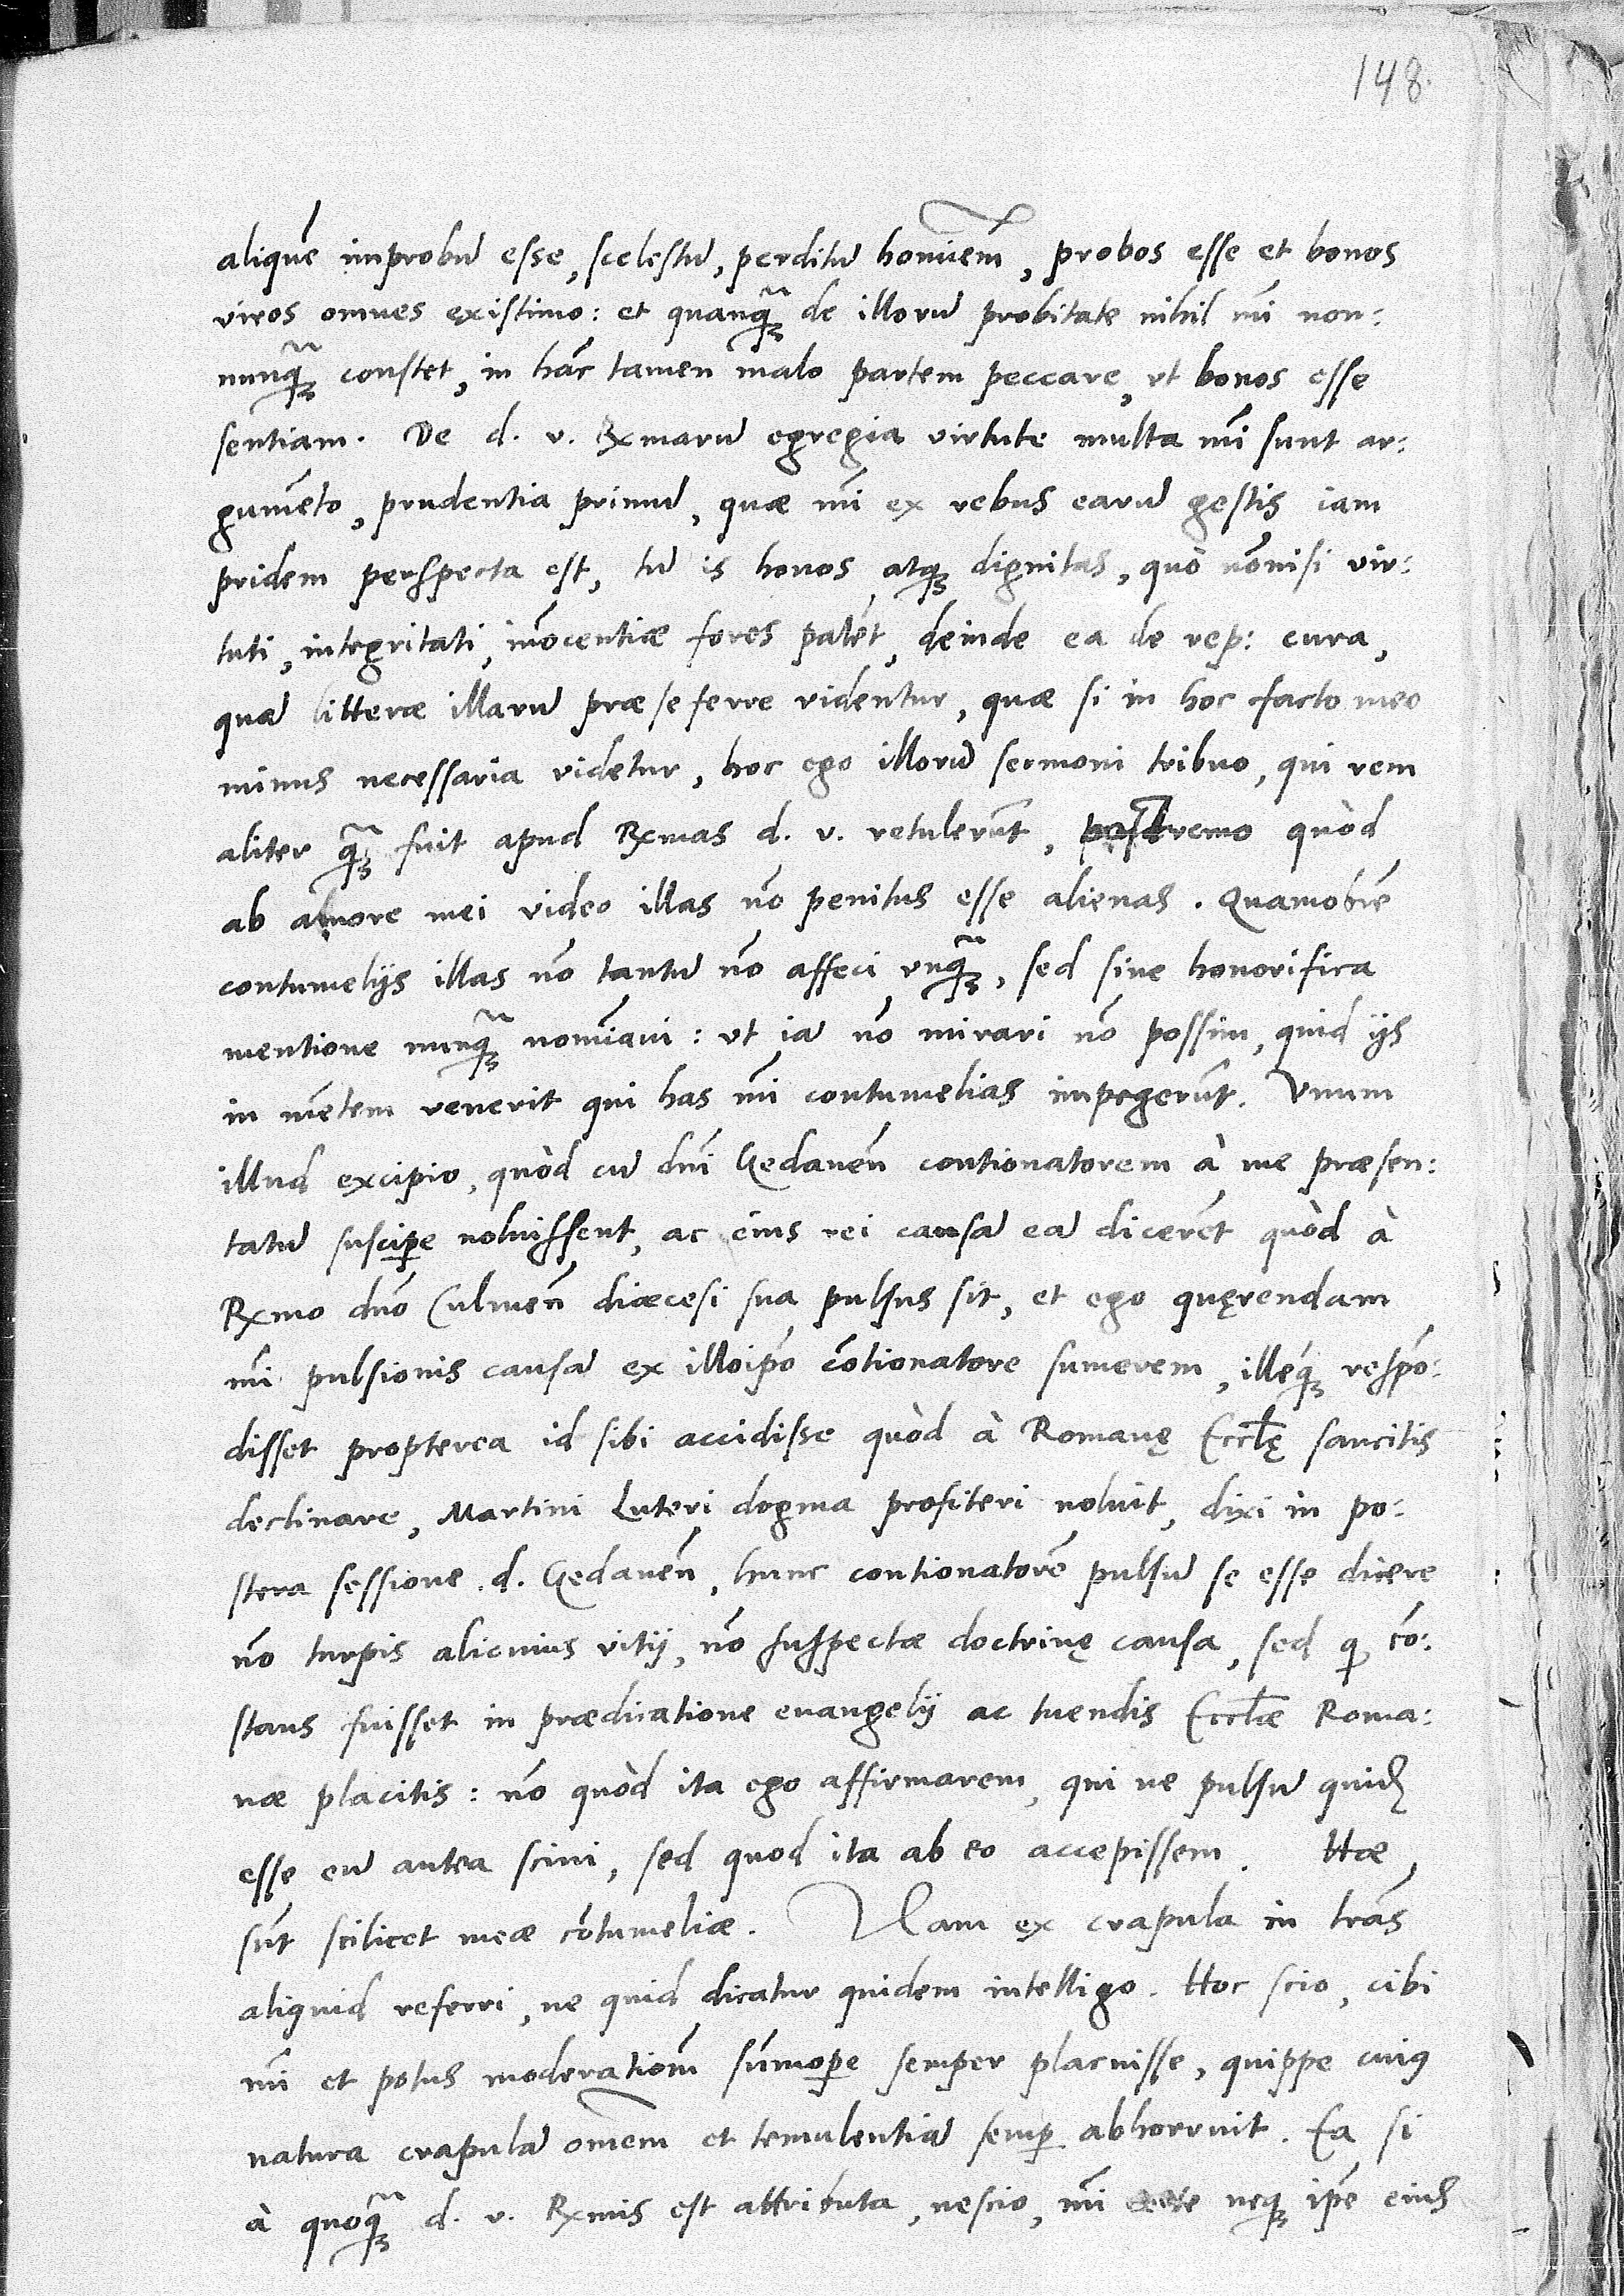 148.
aliquẽ improbũ esse, scelestũ, perditũ hominem̃, probos esse et bonos
viros omnes existimo: et quanq̃ꝫ de illorũ probitate nihil mĩ non:
nunq̃ꝫ constet, in hãc tamen malo partem peccare, vt bonos esse
sentiam. De d. v. Rxmarũ egregia virtute multa mĩ sunt ar:
gumẽto, prudentia primũ, quæ mĩ ex rebus earũ gestis iam
pridem perspecta est, tũ is honos atqꝫ dignitas, quò nõnisi vir:
tuti, integritati, inõcentiæ fores patẽt, deinde ea de rep: cura,
quã litteræ illarũ præ se ferre videntur, quæ si in hoc facto meo
minus necessaria videtur, hoc ego illorũ sermoni tribuo, qui rem
aliter q̃ꝫ fuit apud Rxmas d. v. retulerũt, postremo quòd
ab amore mei video illas nõ penitus esse alienas. Quamobrẽ
contumelijs illas nõ tantũ nõ affeci vnq̃ꝫ, sed sine honorifica
mentione nunq̃ꝫ nomĩaui: vt iã nõ mirari nõ possim, quid ijs
in mẽtem venerit qui has mĩ contumelias impegerũt. Vnum
illud excipio, quòd cũ dnĩ Gedaneñ contionatorem à me præsen:
tatũ suscipe noluissent, ac eius rei causã eã dicerẽt quòd à
Rxmo dnõ Culmeñ diœcesi sua pulsus sit, et ego quęrendam
mĩ pulsionis causã ex illoipõ cõtionatore sumerem, illéqꝫ respõ:
disset propterea id sibi accidisse quòd à Romanę Eccl̃ę sancitis
declinare, Martini Luteri dogma profiteri noluit, dixi in po:
stera sessione d. Gedaneñ, hunc contionatorẽ pulsũ se esse dicere
nõ turpis alicuius vitij, nõ suspectæ doctrinę causa, sed q̨ cõ:
stans fuisset in prædicatione euangelij ac tuendis Eccl̃æ Roma:
næ placitis: nõ quòd ita ego affirmarem, qui ne pulsũ quid̃
esse eũ antea sciui, sed quod ita ab eo accepissem. Hæ
sũt scilicet meæ cõtumeliæ. Nam ex crapula in trãs
aliquid referri, ne quid dicatur quidem intelligo. Hoc scio, cibi
mĩ et potus moderationẽ sũmope semper placuisse, quippe cuiꝰ
natura crapulã omẽm et temulentiã semp abhorruit. Ea si
à quoq̃ꝫ d. v. Rxmis est attributa, nescio, mĩ neqꝫ ipẽ eius